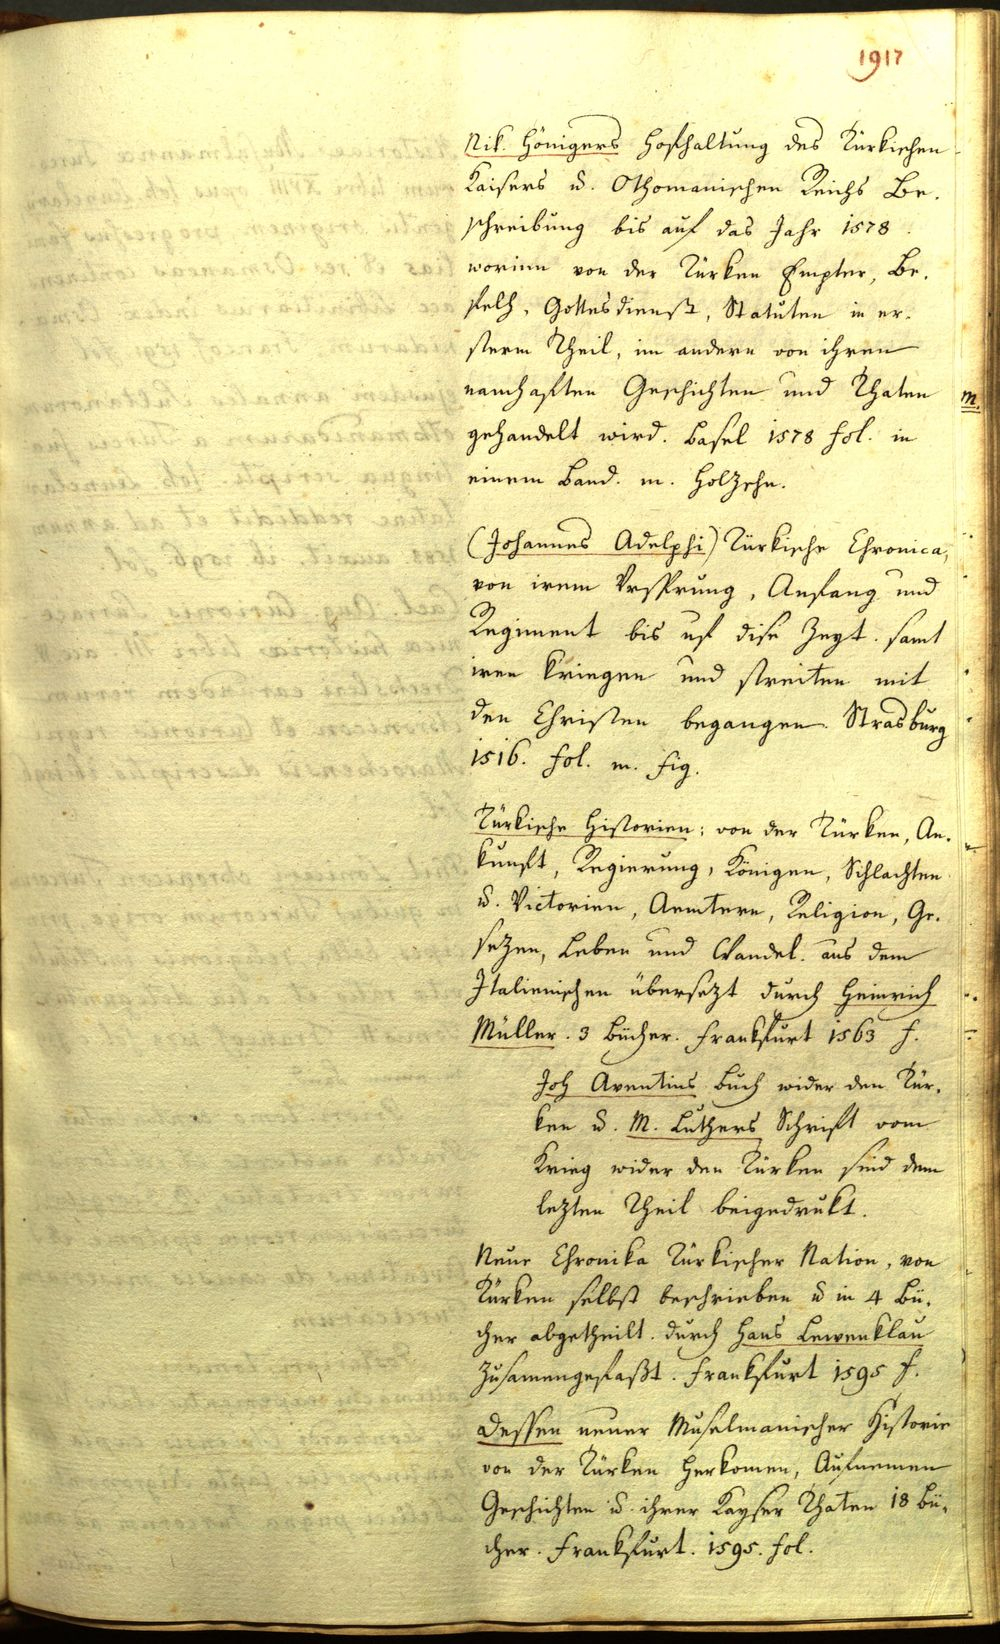 1917
Nik. Hönigers Hofhaltung des Türkischen
Kaisers u. Othomanischen Reichs Be-
schreibung bis auf das Jahr 1578.
worinn von der Türken Empter, Be-
felh, Gottesdienst, Statuten in er-
sterm Theil, im andern von ihren
namhaften Geschichten und Thaten
gehandelt wird. Basel 1578 fol. in
einem Band. m. Holzschn.
(Johannes Adelphi) Türkische Chronica,
von irem Vrsprung, Anfang und
Regiment bis uf dise Zeyt. samt
iren kriegen und streiten mit
den Christen begangen. Strasburg
1516. fol. m. fig.
Türkische Historien: von der Türken, An-
kunft, Regierung, Königen, Schlachten
u. Victorien, Aemtern, Religion, Ge-
sezen, Leben und Wandel. aus dem
Italienischen übersezt durch Heinrich
Müller. 3 Bücher. Frankfurt 1563 f.
Joh Aventins Buch wider den Tür-
ken u. M. Luthers Schrift vom
Krieg wider den Türken sind dem
lezten Theil beigedrukt.
Neue Chronika Türkischer Nation, von
Türken selbst beschrieben u in 4 Bü-
cher abgetheilt. durch Hans Lewenklau
zusamengefaßt. Frankfurt 1595 f.
Dessen neuer Muselmanischer Historie
von der Türken Herkomen, Aufnemen
Geschichten u. ihrer Kayser Thaten 18 Bü-
cher. Frankfurt. 1595. fol.